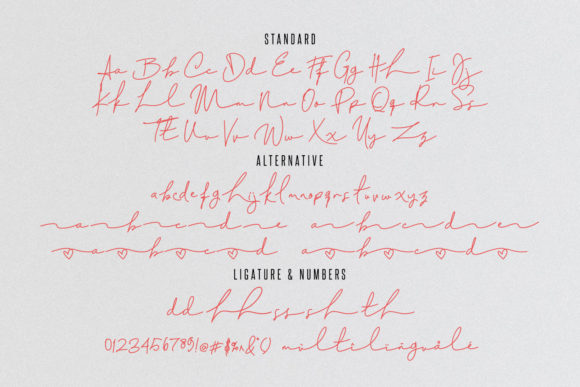 STANDARD
Aa Bb Cc Dd Ee Ff Gg Hh Ii Jj
Kk Ll Mm Nn Oo Pp Qq Rr Ss
Tt Uu Vv Ww Xx Yy Zz
ALTERNATIVE
abcdefghijklmnopqrstuvwxyz
a b c d e a b c d e
a b c d a b c d
LIGATURE & NUMBERS
dd ff ss sh th
0123456789!@#$%^&*() multilinguálé